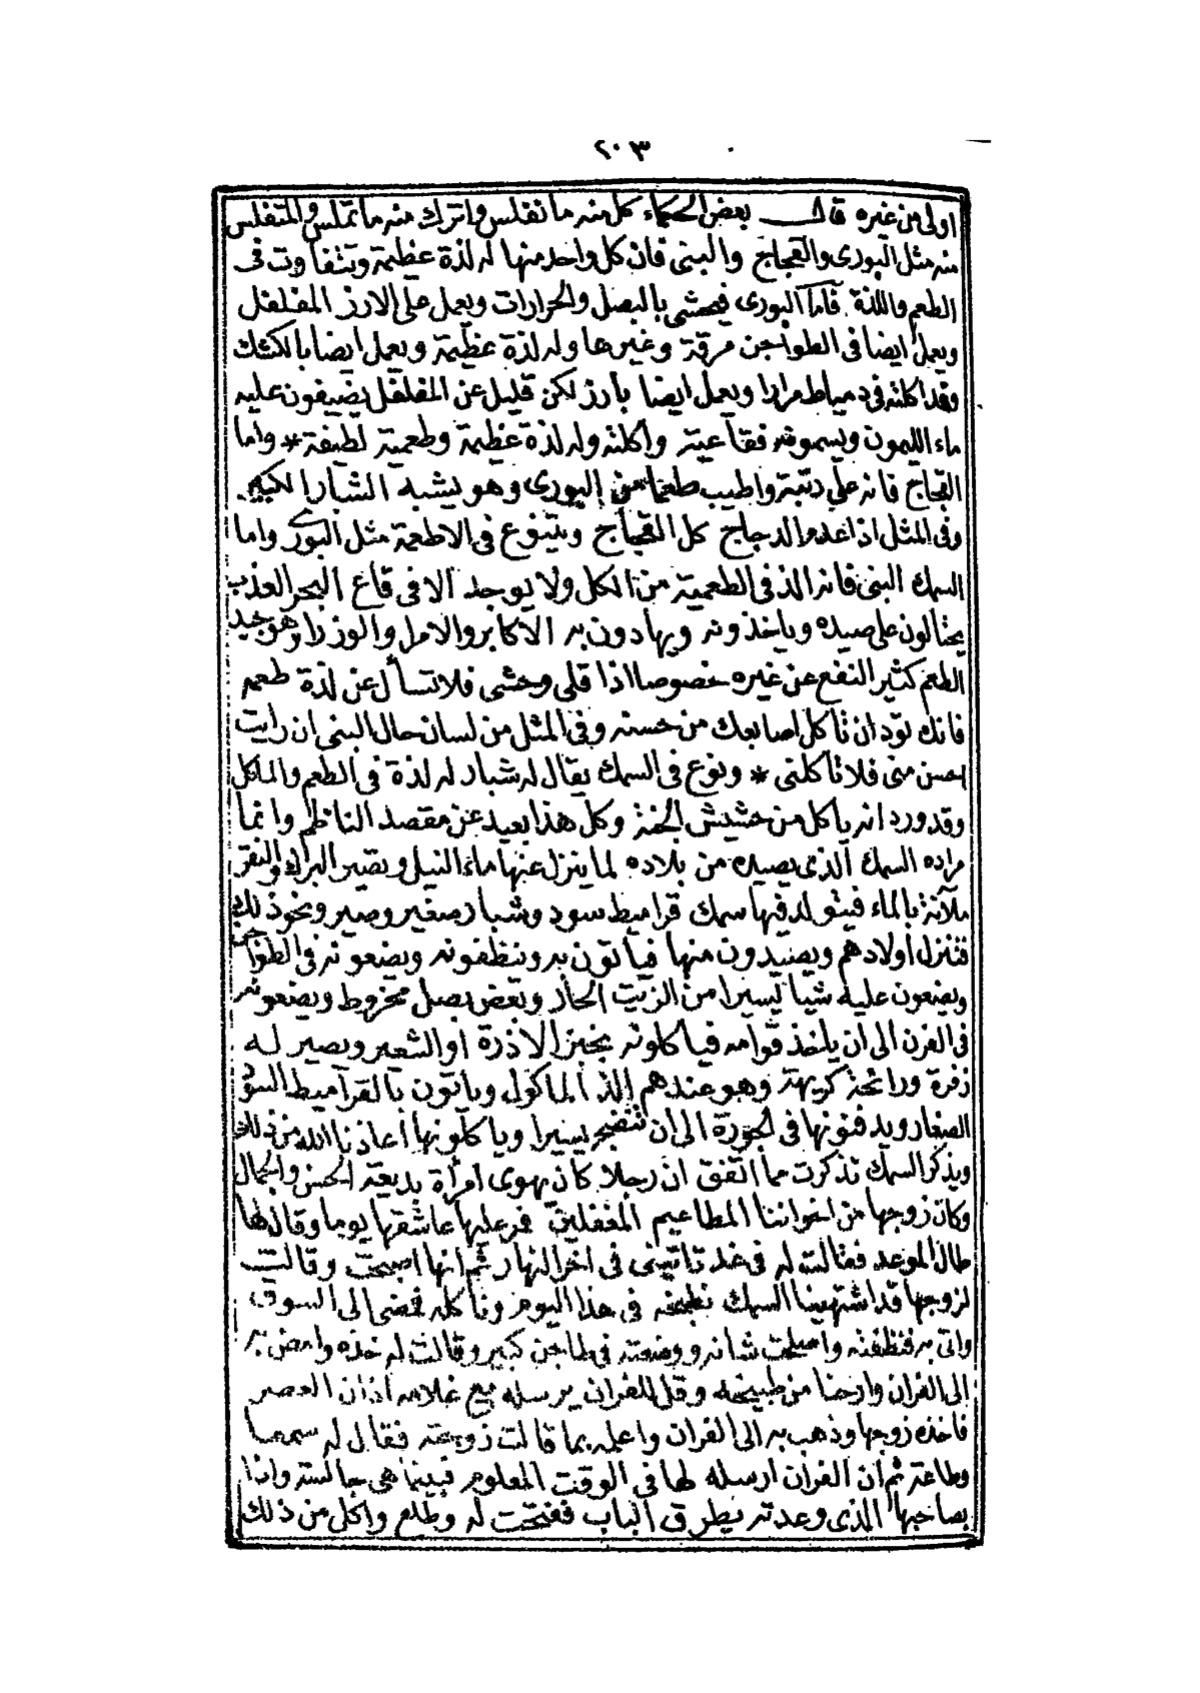 ٢٠٣
اولى من غيره قال بعض الحكماء كل منه ما تفلس واترك منه ما تملس والمتفلس
منه مثل البورى والقجاج والبنى فان كل واحد منها له لذة عظيمة وتتفاوت فى
الطعم واللذة فاما البورى فيحشى بالبصل والحرارات ويعمل على الارز المفلفل
ويعمل ايضا فى الطواجن مرقة وغيرها وله لذة عظيمة ويعمل ايضا بالكشك
وقد اكلته فى دمياط مرارا ويعمل ايضا بارز لكن قليل عن المفلفل يضيفون عليه
ماء الليمون ويسمونه فقاعية واكلته وله لذة عظيمة وطعمية لطيفة * واما
القجاج فانه على رتبة واطيب طعما من البورى وهو يشبه الشبار الكبير
وفى المثل اذا عدم الدجاج كل القجاج ويتنوع فى الاطعمة مثل البورى واما
السمك البنى فانه الذ فى الطعمية من الكل ولا يوجد الا فى قاع البحر العذب
يحتالون على صيده وياخذونه ويهادون به الاكابر والامرا والوزرا وهو جيد
الطعم كثير النفع عن غيره خصوصا اذا قلى وحشى فلا تسأل عن لذة طعمه
فانك تود ان تاكل اصابعك من حسنه وفى المثل من لسان حال البنى ان رايت
احسن منى فلا تاكلنى * ونوع فى السمك يقال له شبار له لذة فى الطعم والماكل
وقد ورد انه ياكل من حشيش الجنة وكل هذا بعيد عن مقصد الناظم وانما
مراده السمك الذى يصيده من بلاده لما ينزل عنها ماء النيل وتصير البرك والنقر
ملآنة بالماء فيتولد فيها سمك قراميط سود وشبار صغير وصير ونحو ذلك
فتنزل اولادهم ويصيدون منها فياتون به وينظفونه ويضعونه فى الطواجن
ويضعون عليه شيأ يسيرا من الزيت الحار وبعض بصل مخروط ويضعونه
فى الفرن الى ان ياخذ قوامه فياكلونه بخبز الاذرة او الشعير ويصير له
زفرة ورائحة كريهة وهو عندهم الذ الماكول وياتون بالقراميط السود
الصغار ويدفنونها فى الجورة الى ان تنضج يسيرا وياكلونها اعاذنا الله من ذلك
وبذكر السمك تذكرت مما اتفق ان رجلا كان يهوى امرأة بديعة الحسن والجمال
وكان زوجها من اخواننا المطاعيم المغفلين فمر عليها عاشقها يوما وقال لها
طال الموعد فقالت له فى غد تاتينى فى اخر النهار ثم انها اصبحت وقالت
لزوجها قد اشتهينا السمك نطبخه فى هذا اليوم وناكله فمضى الى السوق
واتى به فنظفته واصلحت شانه ووضعته فى طاجن كبير وقالت له خذه وامض به
الى الفران وارحنا من طبيخه وقل للفران يرسله مع غلامه اذان العصر
فاخذه زوجها وذهب به الى الفران واعلمه بما قالت زوجته فقال له سمعا
وطاعة ثم ان الفران ارسله لها فى الوقت المعلوم فبينما هى جالسة واذا
بصاحبها الذى وعدته يطرق الباب ففتحت له وطلع واكل من ذلك